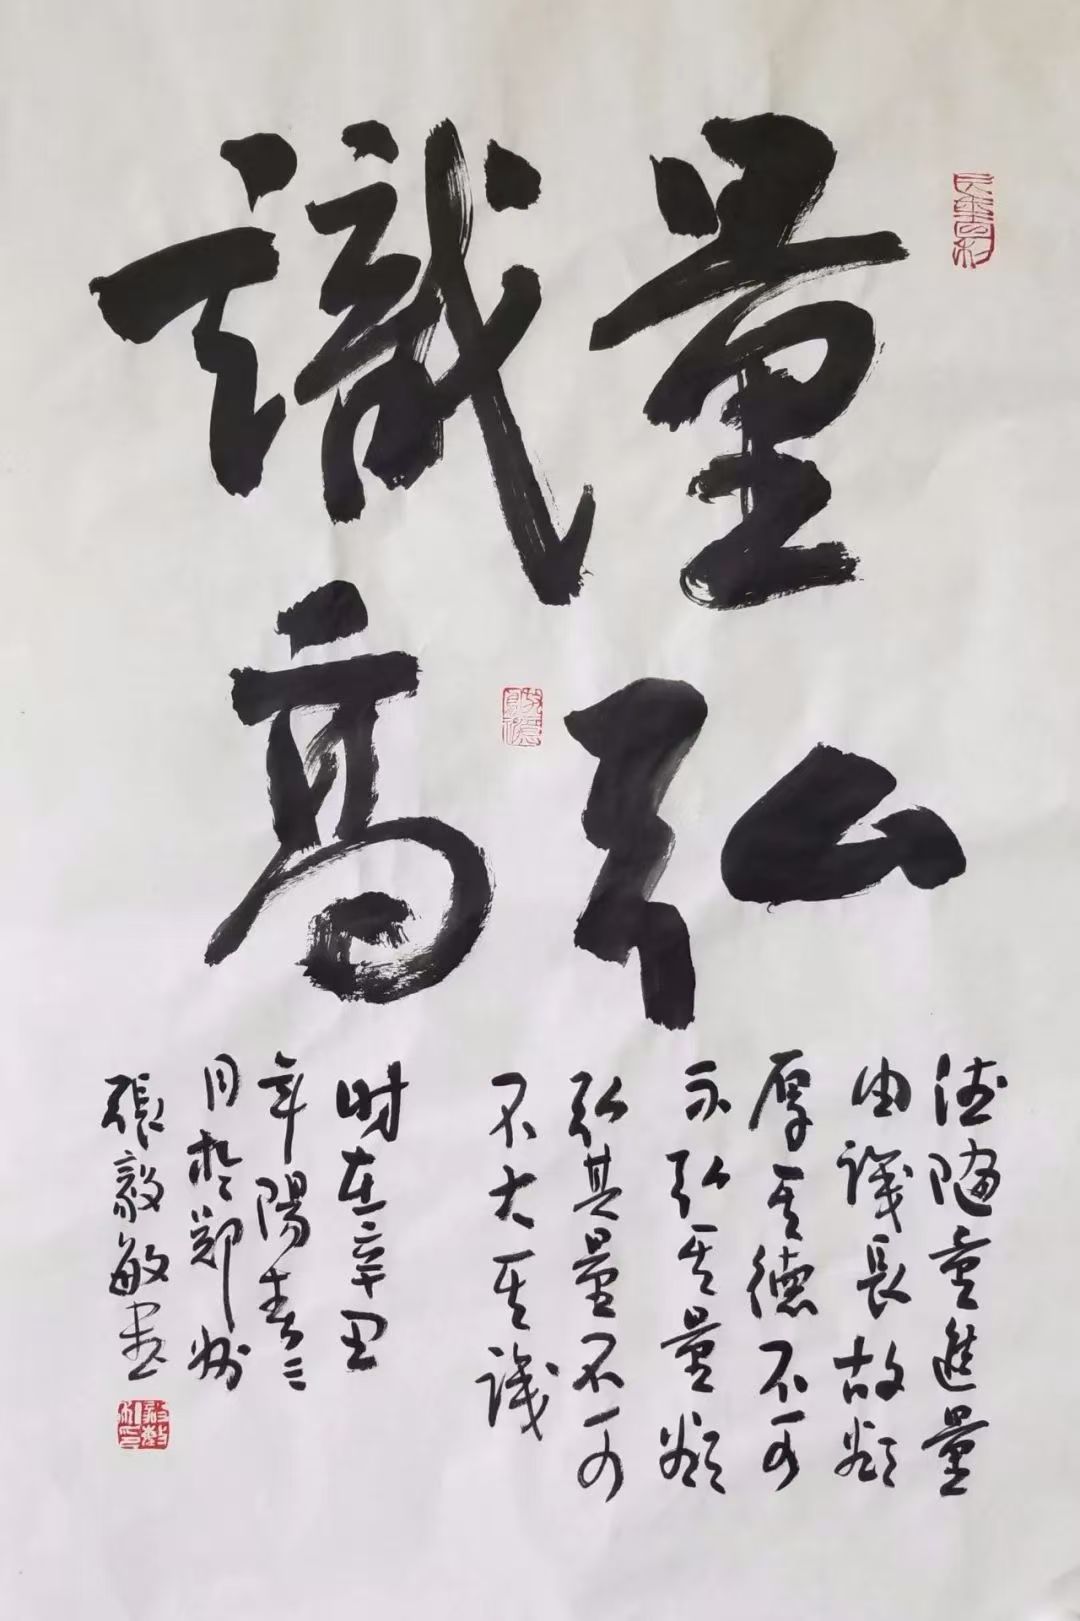 量弘
識高
德隨量進量
由識長故欲
厚其德不可
不弘其量欲
弘其量不可
不大其識
时在辛丑
年陽春三
月於郑州
張毅敏書